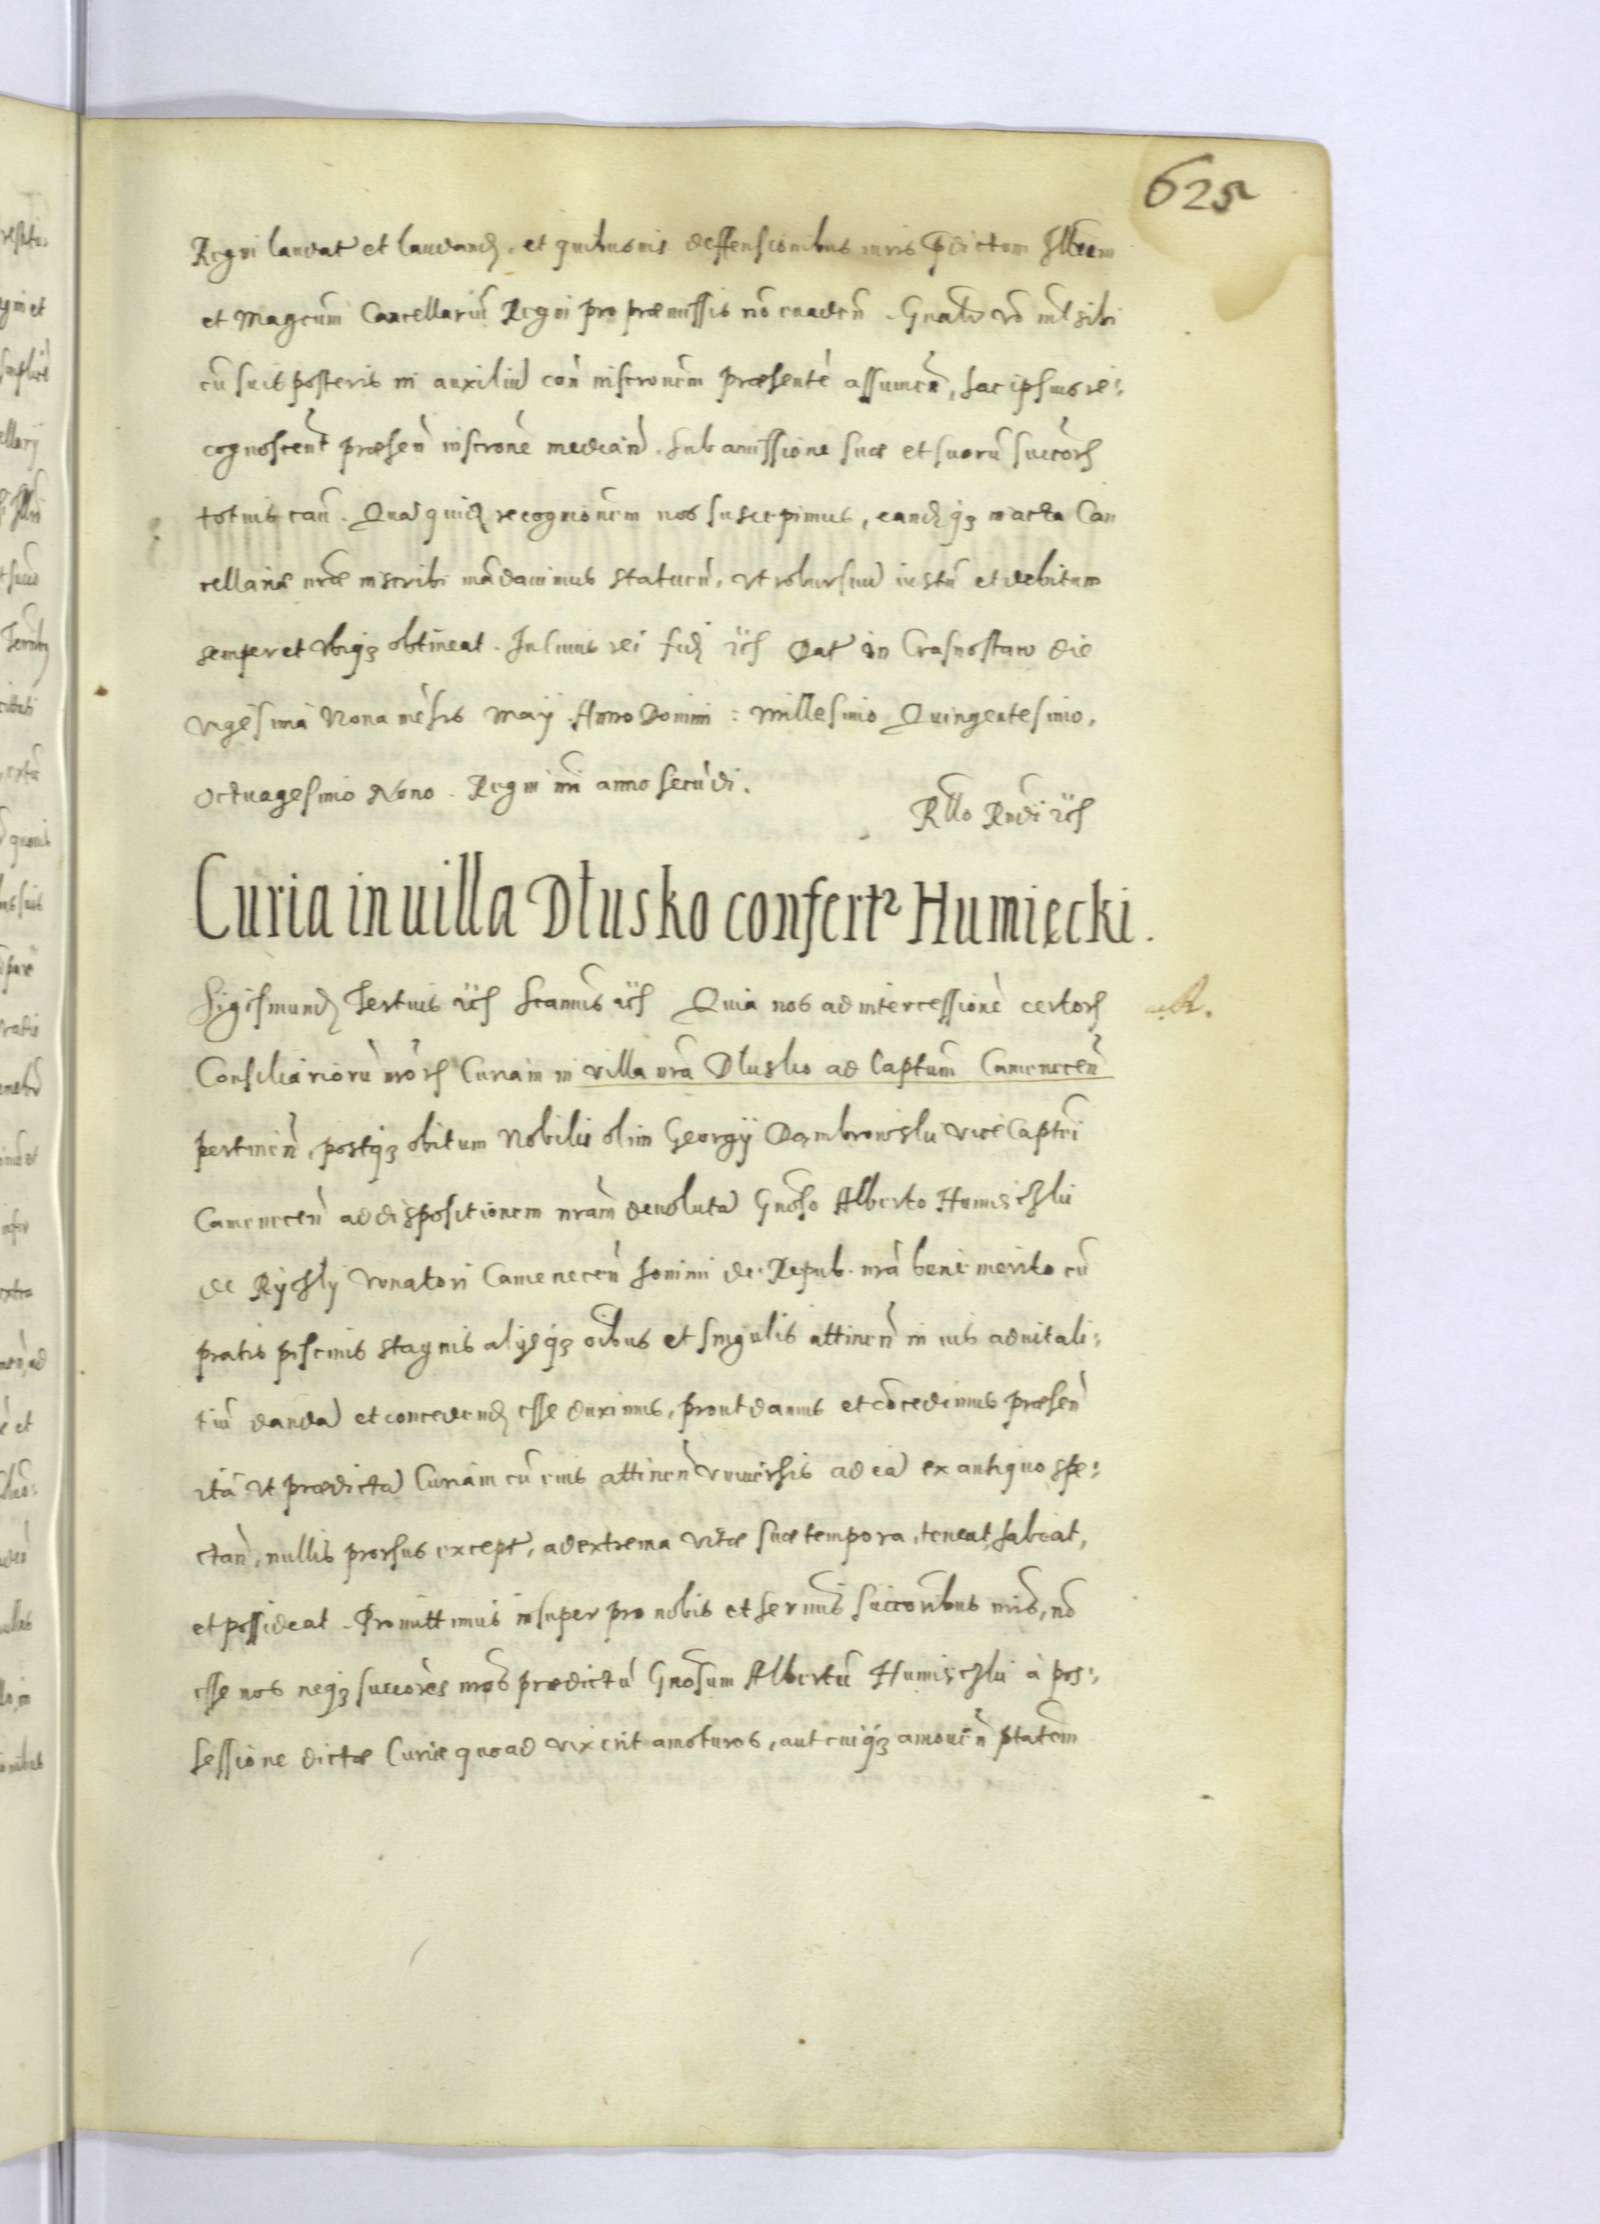 625
Regni laudat et laudand, et quibusuis deffensionibus iuris pdictum Illrem
et Magcum Cancellariũ Regni pro præmissis nõ euaden. Gnalr vo nil sibi
cũ suis posteris in auxiliũ con inscronem præsente assumen, hac ipsius re:
cognoscent præsen inscrone median. Sub amissione suæ et suorũ succorũ
totius cau. Quã quid recognonem nos suscepimus, eandq3 in acta Can
cellariæ nræ inscribi mãdauimus statuen, vt robur suũ iustũ et debitum
semper et vbiq3 obtineat. In cuius rei fid etc Dat in Crasnostaw die
vigesima Nona mensis Maij Anno Domini : Millesimo Quingentesimo,
Octuagesimo Nono. Regni nri anno secũdi.
Rllo Rndi etc
Curia in uilla Dłusko confertr Humięcki.
Sigismund Tertius etc Scamus etc Quia nos ad intercessione certorũ
Consiliariorũ nrorũ Curiam in villa nra Dlusko ad Captum Camenecen
pertinen, postq3 obitum Nobilis olim Georgij Dambrowski vice Captei
Camenecen ad dispositionem nram deuolutã Gnoso Alberto Humieczki
de Rychty Venatori Camenecen homini de Repub. nra bene merito cũ
pratis piscinis stagnis alijsq3 oibus et singulis attinen in ius aduitali:
tiũ dandã et concedend esse duximus, prout damus et cõcedimus præsen
ita vt prædictã Curiam cũ eius attinen vniuersis ad eã ex antiquo spe:
ctan, nullis prorsus except, ad extrema vitæ suæ tempora, teneat, habeat,
et possideat. Promittimus insuper pro nobis et sermis succoribus nris, nõ
esse nos neq3 succores nros prædictũ Gnosum Albertũ Humieczki à pos:
sessione dictæ Curiæ quoad vixerit amoturos, aut cuiq3 amouen ptatem